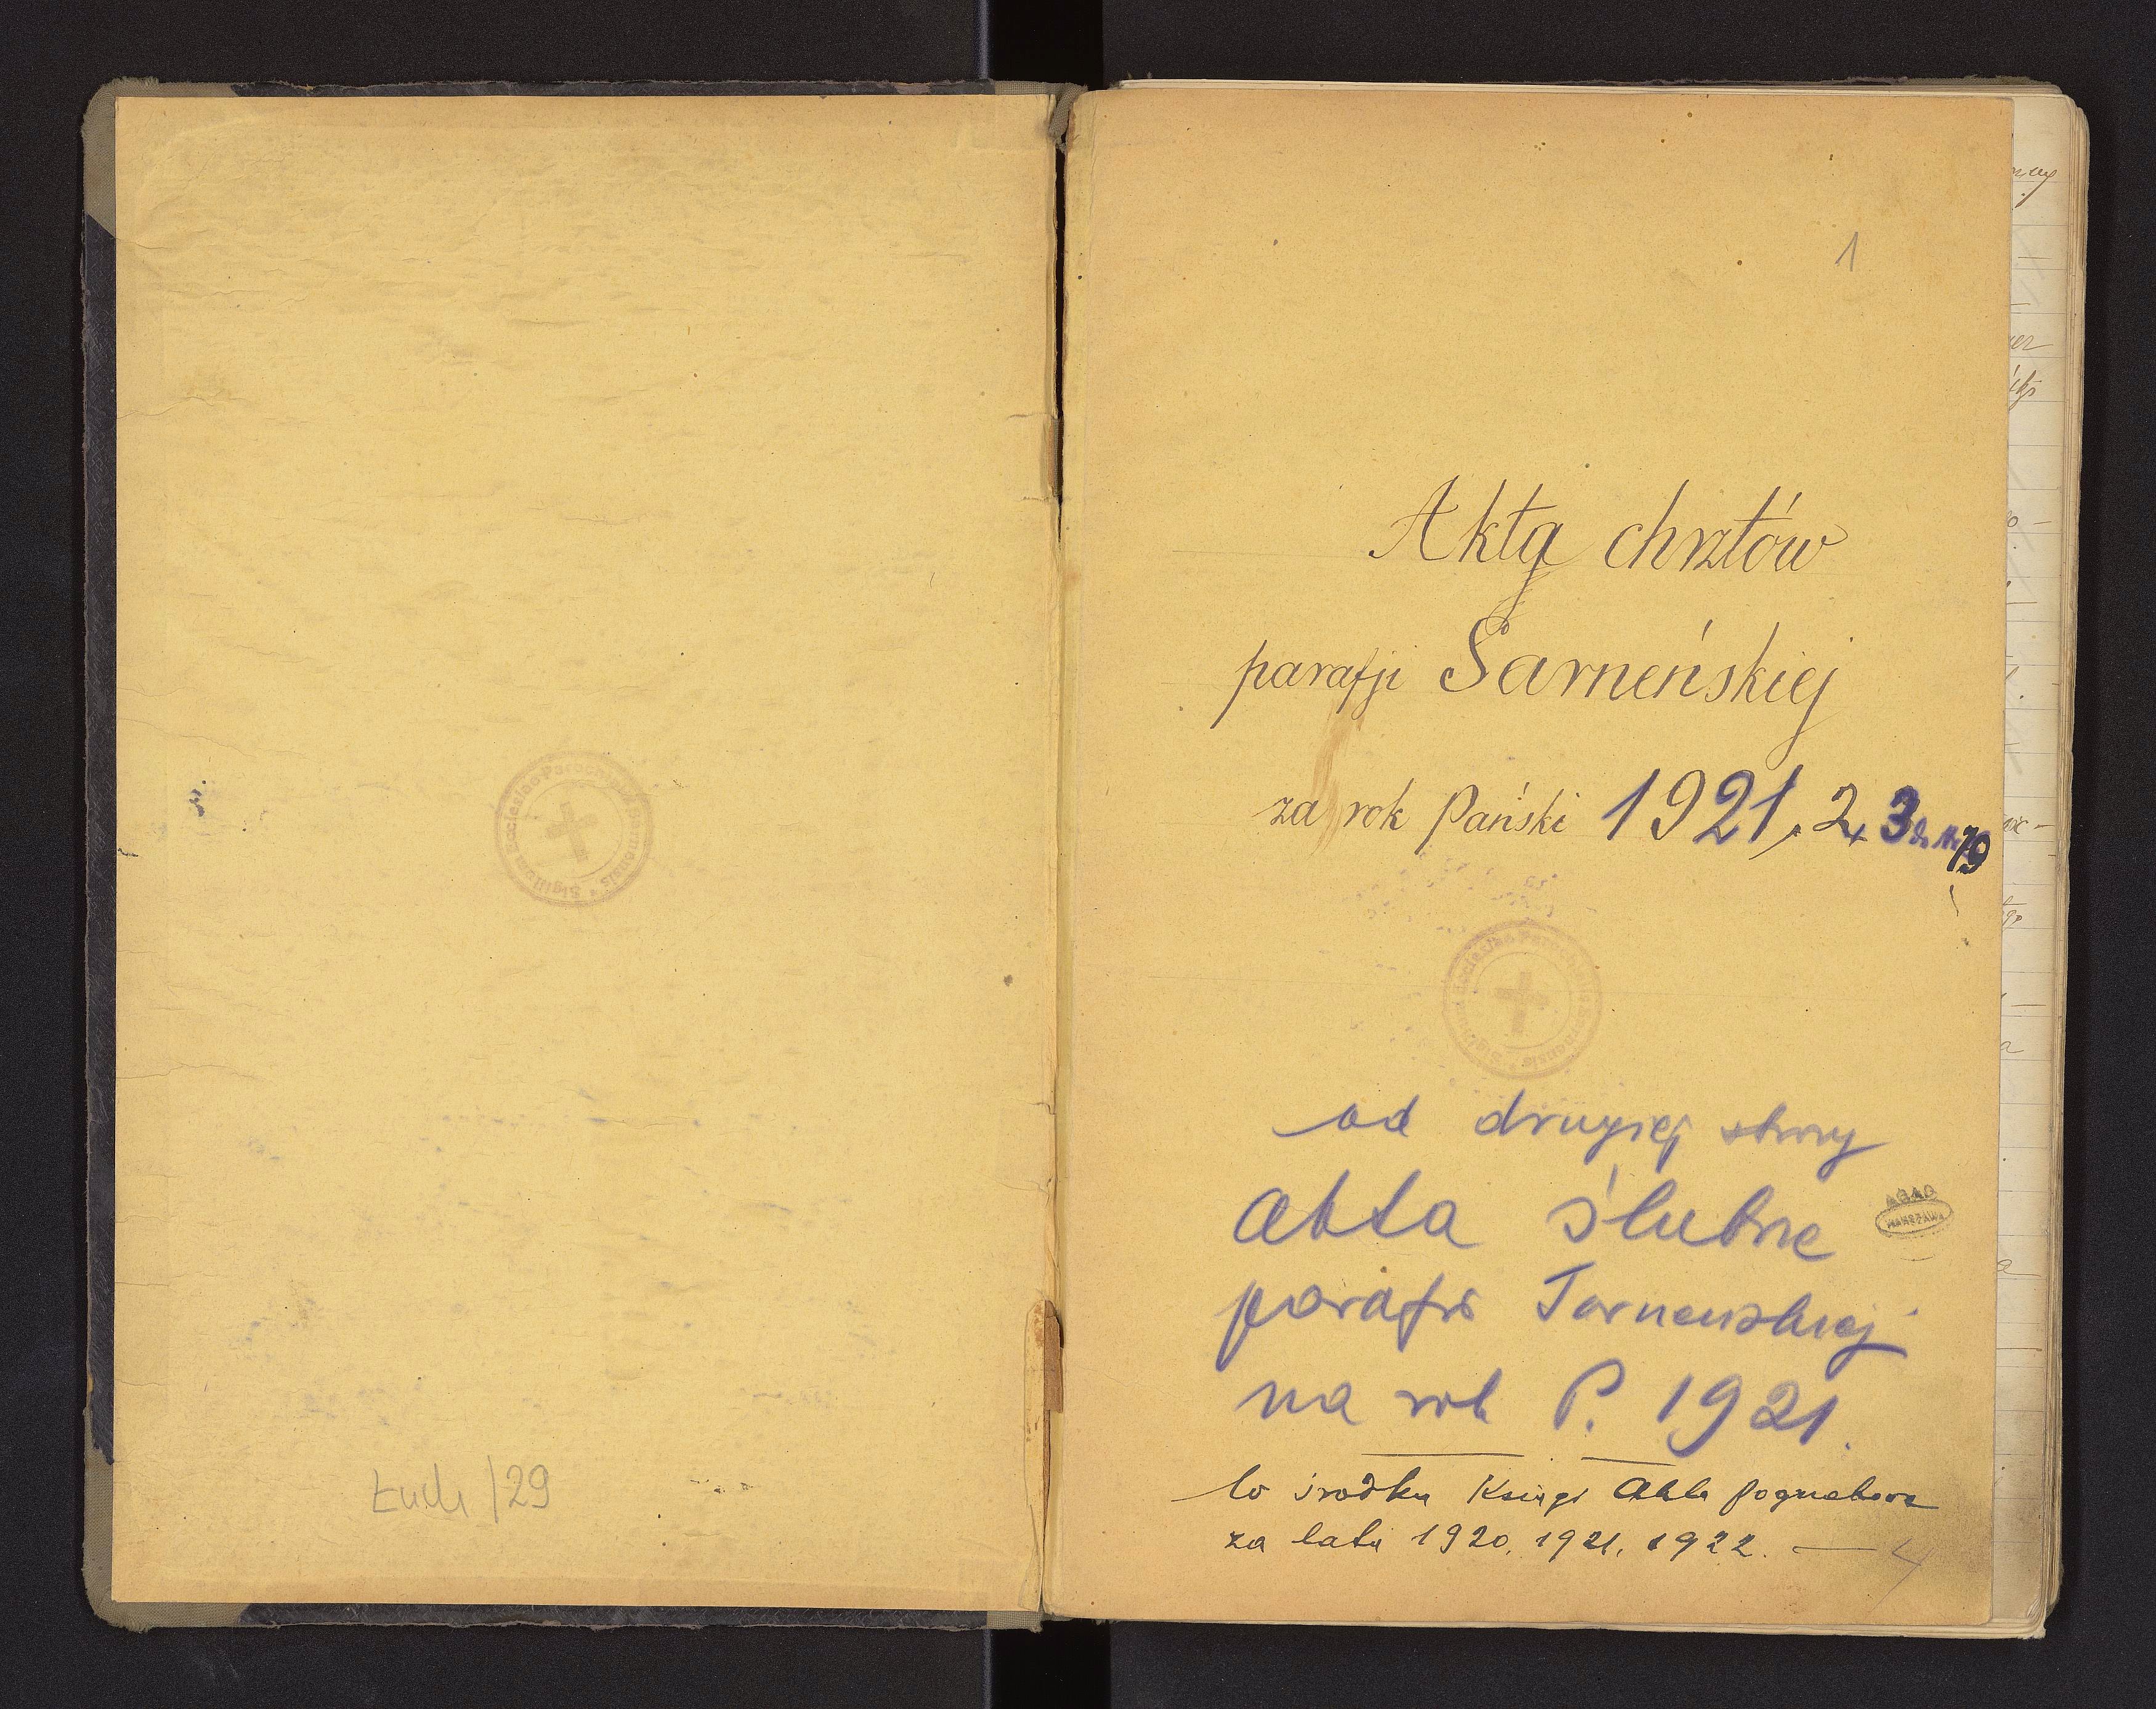 Łuck /29
1
Akta chrztów
parafji Sarneńskiej
za rok Pański 1921, 2, 3 do Nr 79
Sigillum Ecclesiae Parochialis Sarnensis
od drugiej strony
Akta ślubne
parafii Sarnenskiej
na rok P. 1921.
AGAD
WARSZAWA
w środku Księgi Akta pogrzebowe
za lata 1920, 1921, 1922. —